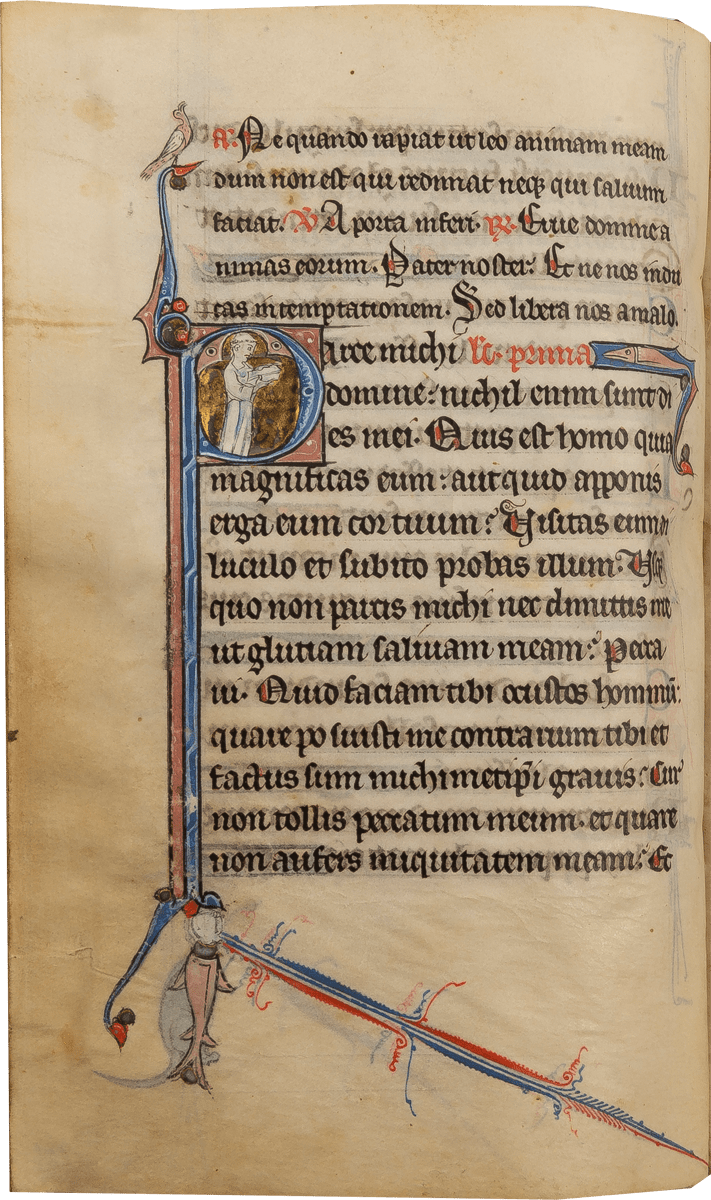 a. Ne quando rapiat ut leo animam meam
dum non est qui redimat neqz qui saluum
faciat. V A porta inferi. R. Erue domine a
nimas eorum. Pater noster. Et ne nos indu
cas in temptationem. Sed libera nos a malo.
Parce michi lc. prima
domine: nichil enim sunt di
es mei. Quis est homo quia
magnificas eum: aut quid apponis
erga eum cor tuum? Visitas eum di
luculo et subito probas illum. Usqz
quo non parcis michi nec dimittis me
ut glutiam saliuam meam? Pecca
ui. Quid faciam tibi o custos hominū:
quare posuisti me contrarium tibi et
factus sum michimetip̄i grauis? Cur
non tollis peccatum meum. et quare
non aufers iniquitatem meam? Et